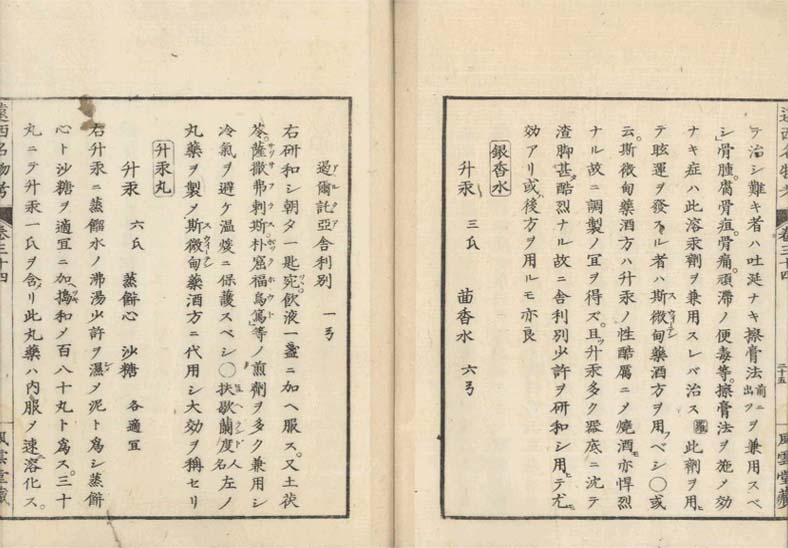 遠西名物考 卷三十四 三十五 風雲堂藏
ヲ治シ難キ者ハ吐涎ナキ擦膏法前ニ出ツヲ兼用スベ
シ骨腫。腐骨疽。骨痛。頑滞ノ便毒等。擦膏法ヲ施メ効
ナキ症ハ此溶汞劑ヲ兼用スレバ治ス 此劑ヲ用ヒ
テ眩運ヲ發スル者ハ斯微甸藥酒方ヲ用フベシ〇或
云。斯微甸藥酒方ハ升汞ノ性酷厲ニメ燒酒亦悍烈
ナル故ニ調製ノ宜ヲ得ズ。且ツ升汞多ク器底ニ沈テ
渣脚甚酷烈ナル故ニ舎利別少許ヲ研和シ用テ尤モ
効アリ或ハ後方ヲ用ルモ亦良
銀香水
升汞 三氏 茴香水 六弓
遏爾託亞舎利別 一弓
右研和シ朝夕一匙宛。飲液一盞ニ加ヘ服ス。又土茯
苓。薩撒弗剌斯。朴窟福烏篤等ノ煎劑ヲ多ク兼用シ
冷氣ヲ避ケ温煖ニ保護スベシ〇扶歇蘭度人名左ノ
丸藥ヲ製メ斯微甸藥酒方ニ代用シ大効ヲ稱セリ
升汞丸
升汞 六氏 蒸餅心 沙糖 各適宜
右升汞ニ蒸餾水ノ沸湯少許ヲ濕メ泥ト爲シ蒸餅
心ト沙糖ヲ適宜ニ加ヘ搗和メ百八十丸ト爲ス。三十
丸ニテ升汞一氏ヲ含メリ此丸藥ハ内服メ速ニ溶化ス。
遠西名物考 卷三十四 風雲堂藏